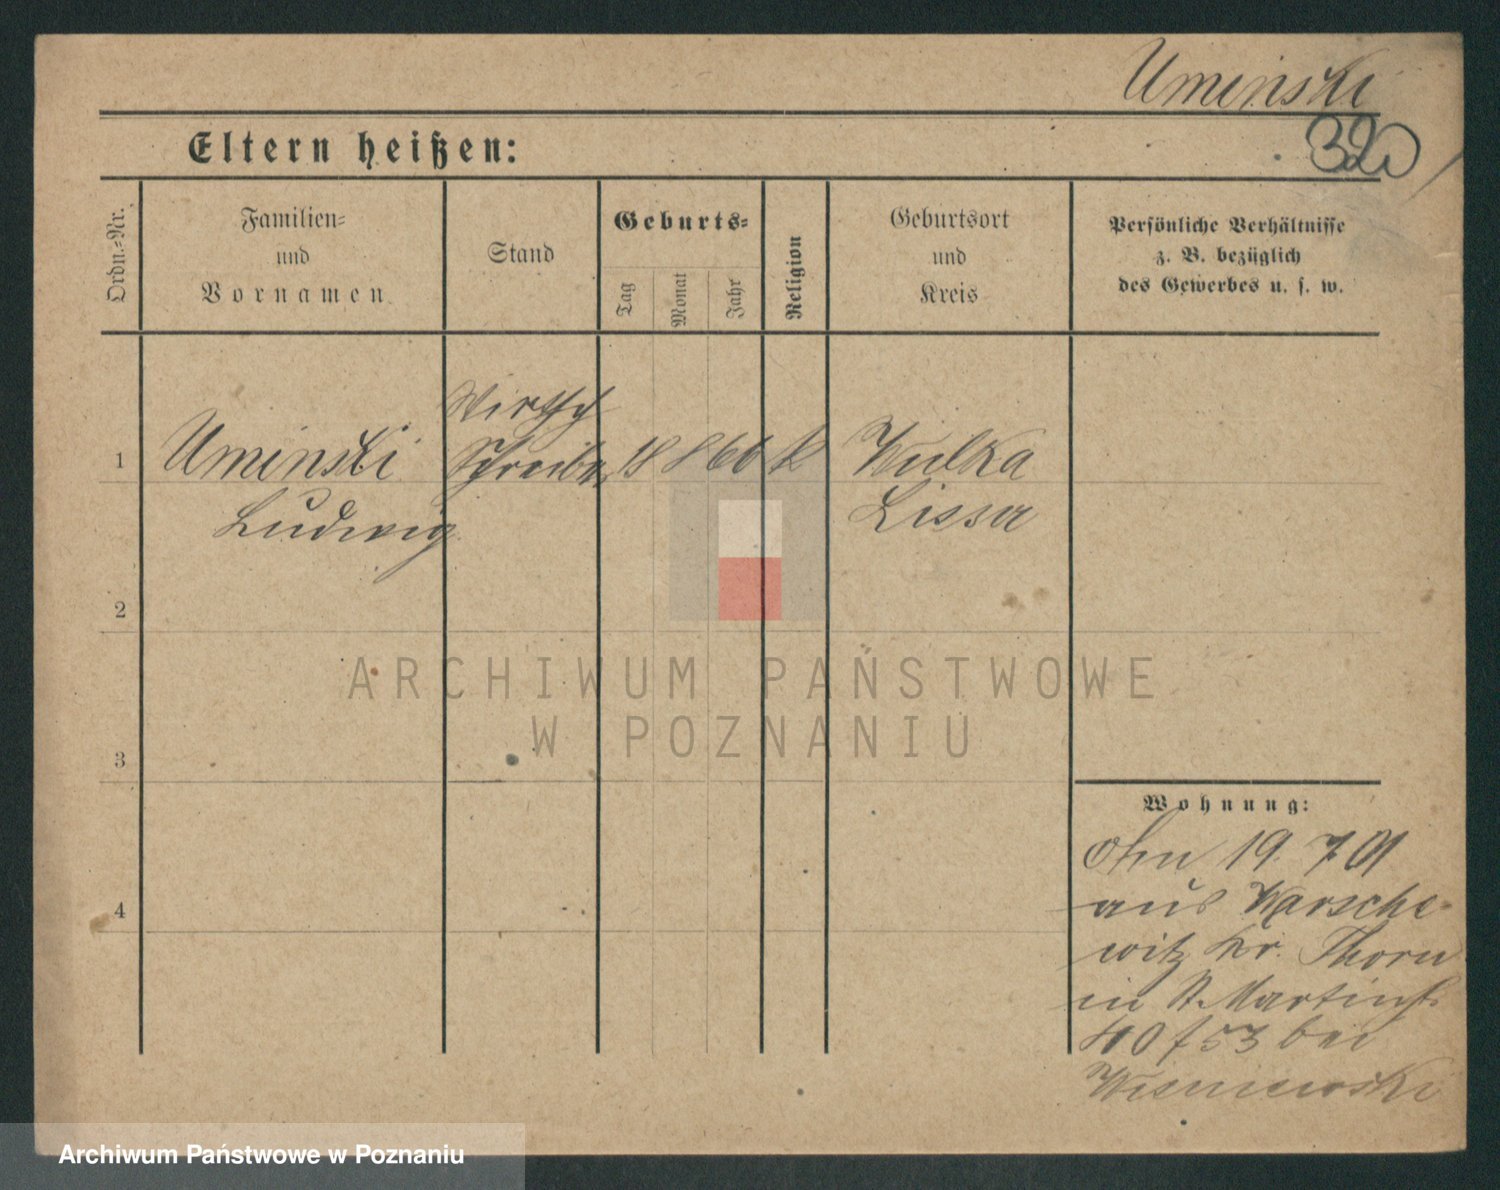 Uminski
320
Eltern heißen:
Ordn.=Nr.
Familien=
und
Vornamen
Stand
Geburts=
Tag
Monat
Jahr
Religion
Geburtsort
und
Kreis
Persönliche Verhältnisse
z. B. bezüglich
des Gewerbes u. s. w.
1
Uminski
Ludwig
Wirtsch
Schreiber
18 8 66 K
Wulka
Lissa
2
3
4
Wohnung:
19. 7 01
aus Warsche-
witz Kr. Thorn
in St. Martinst.
bei
Wisniewski
ARCHIWUM PAŃSTWOWE
W POZNANIU
Archiwum Państwowe w Poznaniu